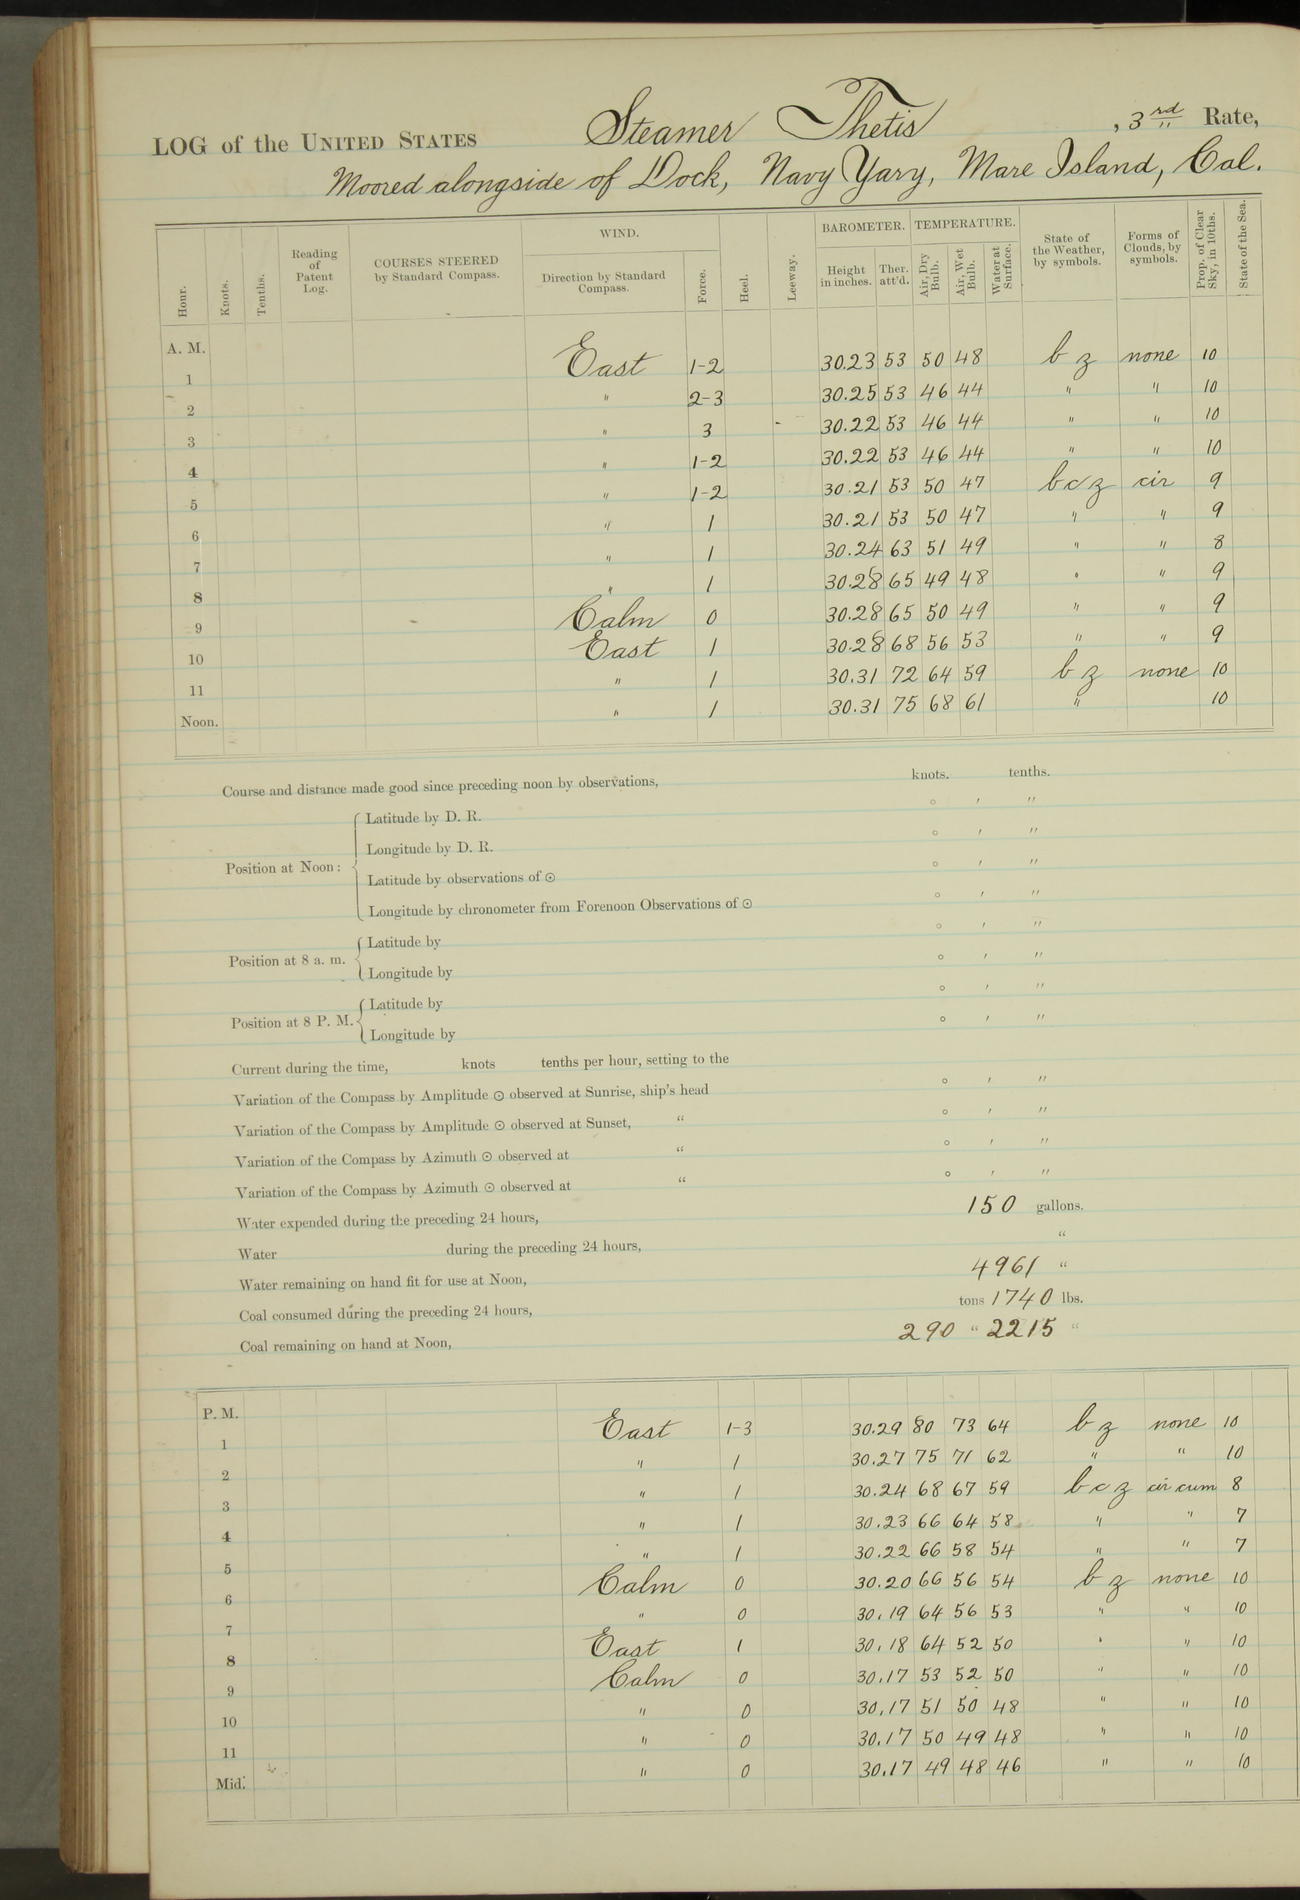 LOG of the UNITED STATES Steamer Thetis, 3rd Rate,
Moored alongside of Dock, Navy Yary, Mare Island, Cal.
Hour. Knots. Tenths. Reading of Patent Log. COURSES STEERED by Standard Compass. WIND. Direction by Standard Compass. Force. Heel. Leeway. BAROMETER. Height in inches. Ther. att'd. TEMPERATURE. Air, Dry Bulb. Air, Wet Bulb. Water at Surface. State of the Weather, by symbols. Forms of Clouds, by symbols. Prop. of Clear Sky, in 10ths. State of the Sea.
A. M.
1 East 1-2 30.23 53 50 48 b z none 10
2 " 2-3 30.25 53 46 44 " " 10
3 " 3 30.22 53 46 44 " " 10
4 " 1-2 30.22 53 46 44 " " 10
5 " 1-2 30.21 53 50 47 b c z cir 9
6 " 1 30.21 53 50 47 " " 9
7 " 1 30.24 63 51 49 " " 8
8 " 1 30.28 65 49 48 " " 9
9 Calm 0 30.28 65 50 49 " " 9
10 East 1 30.28 68 56 53 " " 9
11 " 1 30.31 72 64 59 b z none 10
Noon. " 1 30.31 75 68 61 " 10
Course and distance made good since preceding noon by observations, knots. tenths.
Position at Noon: Latitude by D. R. ° ′ ″
Longitude by D. R. ° ′ ″
Latitude by observations of ⊙ ° ′ ″
Longitude by chronometer from Forenoon Observations of ⊙ ° ′ ″
Position at 8 a. m. Latitude by ° ′ ″
Longitude by ° ′ ″
Position at 8 P. M. Latitude by ° ′ ″
Longitude by ° ′ ″
Current during the time, knots tenths per hour, setting to the
Variation of the Compass by Amplitude ⊙ observed at Sunrise, ship's head ° ′ ″
Variation of the Compass by Amplitude ⊙ observed at Sunset, " ° ′ ″
Variation of the Compass by Azimuth ⊙ observed at " ° ′ ″
Variation of the Compass by Azimuth ⊙ observed at " ° ′ ″
Water expended during the preceding 24 hours, 150 gallons.
Water during the preceding 24 hours, "
Water remaining on hand fit for use at Noon, 4961 "
Coal consumed during the preceding 24 hours, tons 1740 lbs.
Coal remaining on hand at Noon, 290 " 2215 "
P. M.
1 East 1-3 30.29 80 73 64 b z none 10
2 " 1 30.27 75 71 62 " " 10
3 " 1 30.24 68 67 59 b c z cir cum 8
4 " 1 30.23 66 64 58 " " 7
5 " 1 30.22 66 58 54 " " 7
6 Calm 0 30.20 66 56 54 b z none 10
7 " 0 30.19 64 56 53 " " 10
8 East 1 30.18 64 52 50 " " 10
9 Calm 0 30.17 53 52 50 " " 10
10 " 0 30.17 51 50 48 " " 10
11 " 0 30.17 50 49 48 " " 10
Mid. " 0 30.17 49 48 46 " " 10